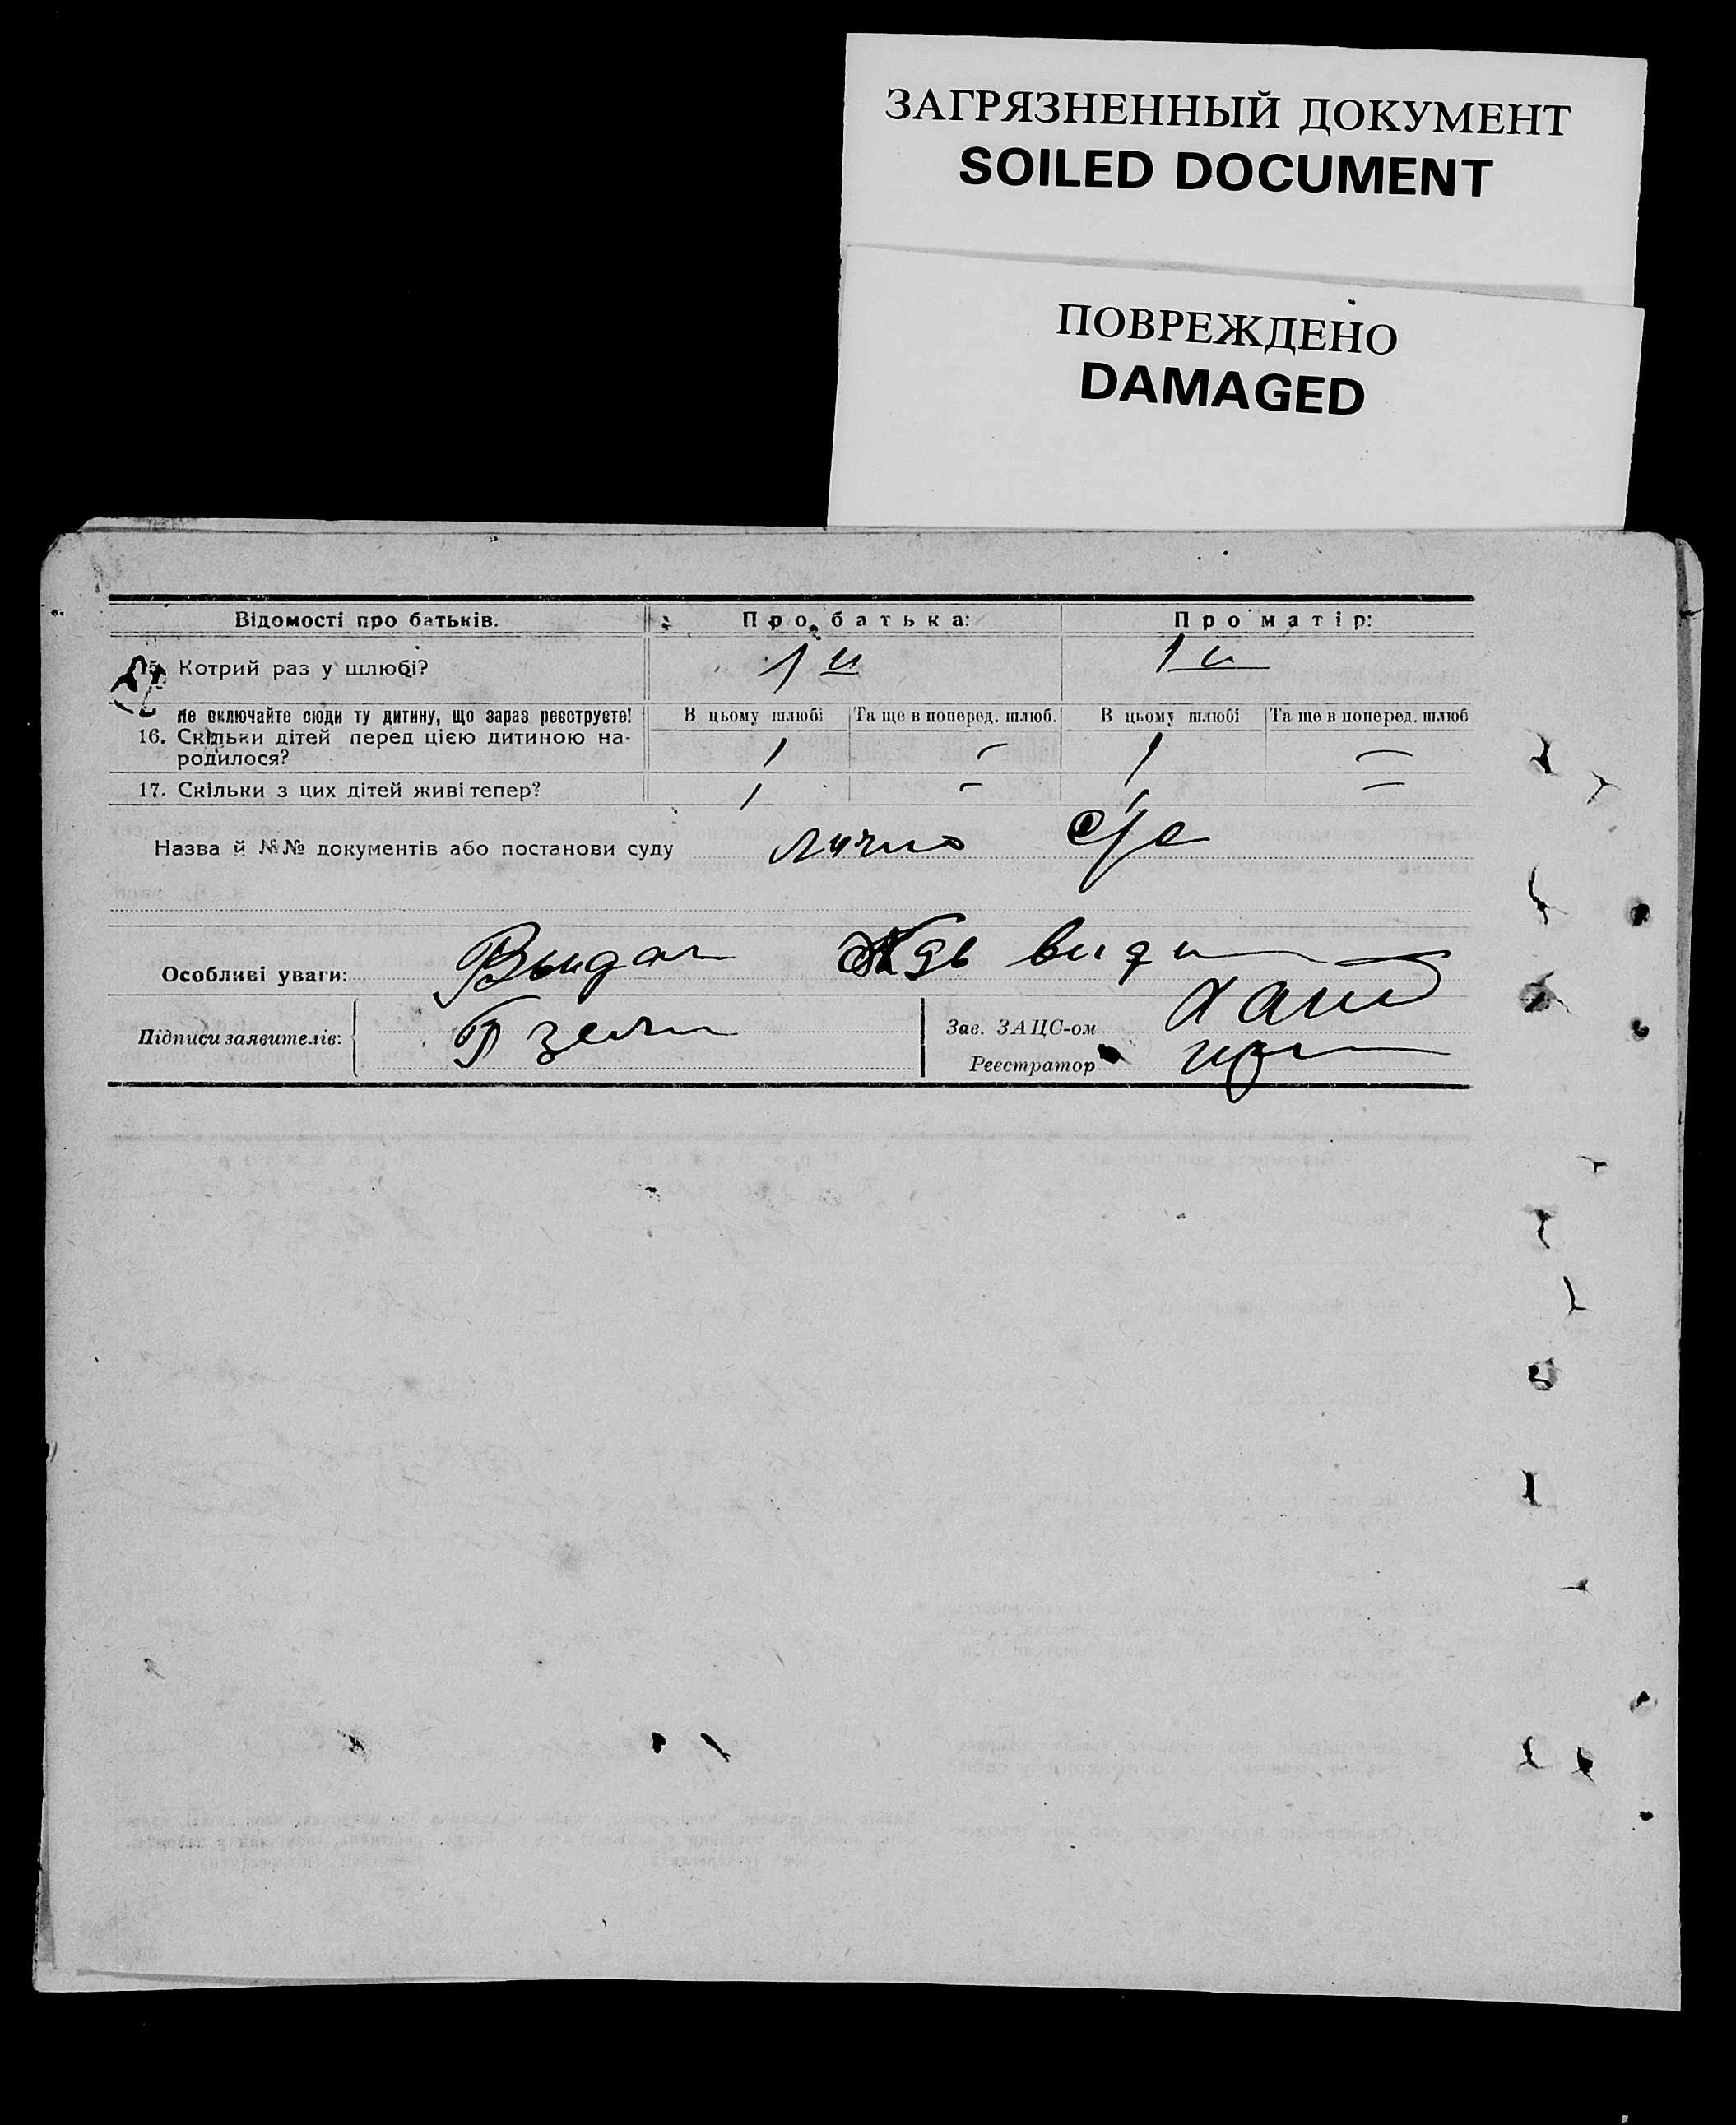 ЗАГРЯЗНЕННЫЙ ДОКУМЕНТ
SOILED DOCUMENT
ПОВРЕЖДЕНО
DAMAGED
Відомості про батьків. Про батька: Про матір:
15. Котрий раз у шлюбі? 1й 1й
Не включайте сюди ту дитину, що зараз реєструєте! В цьому шлюбі Та ще в поперед. шлюб. В цьому шлюбі Та ще в поперед. шлюб
16. Скільки дітей перед цією дитиною на-
родилося? 1 - 1 -
17. Скільки з цих дітей живі тепер? 1 - 1 -
Назва й №№ документів або постанови суду лично
Особливі уваги:
Підписи заявителів: Зав. ЗАЦС-ом
Реєстратор